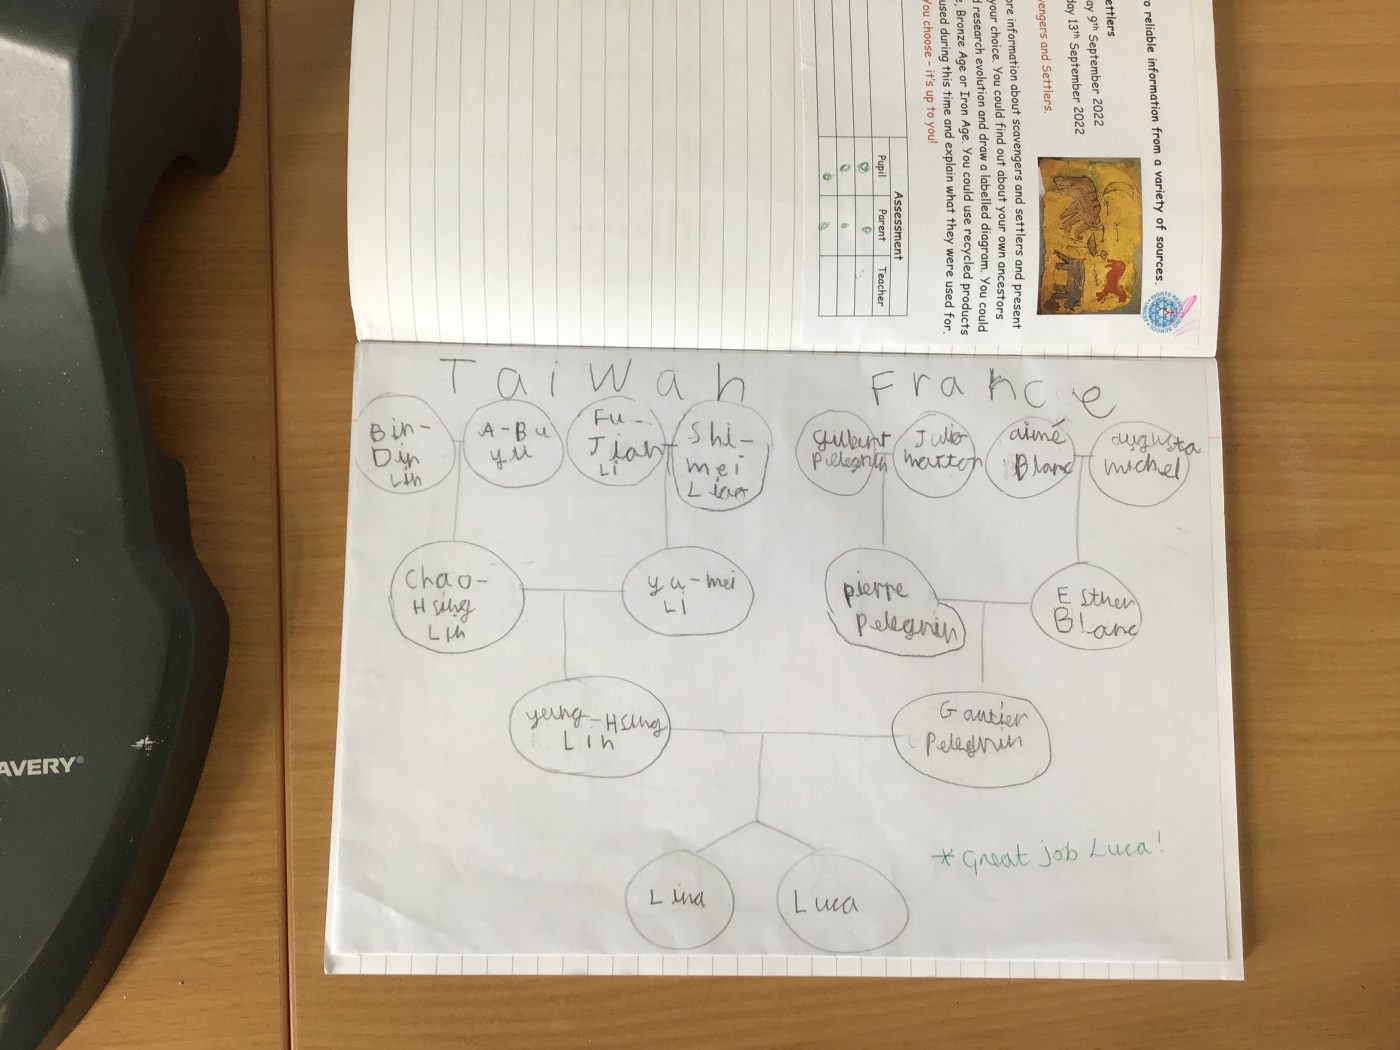 to reliable information from a variety of sources.
ettlers
ay 9th September 2022
day 13th September 2022
vengers and Settlers.
ore information about scavengers and settlers and present
your choice. You could find out about your own ancestors
d research evolution and draw a labelled diagram. You could
e, Bronze Age or Iron Age. You could use recycled products
used during this time and explain what they were used for.
You choose – it's up to you!
Assessment
Pupil Parent Teacher
Taiwan France
Bin-
Din
Lin
A-Bu
yu
Fu-
Jian
Li
Shi-
mei
Liao
gilbert
Pelegrin
Julie
marton
aimé
Blanc
augusta
michel
Chao-
Hsing
Lin
yu-mei
LI
pierre
Pelegrin
Esther
Blanc
yeung-Hsing
Lin
Gautier
Pelegrin
Lina
Luca
* Great job Luca!
AVERY®